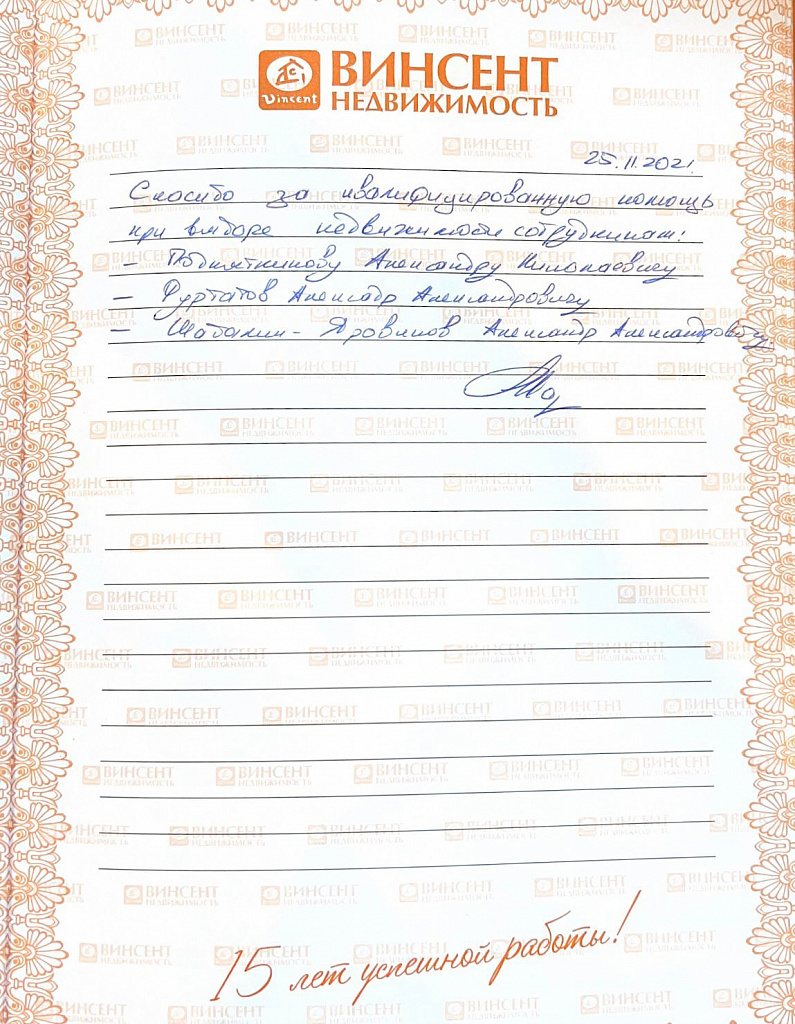 Vincent
ВИНСЕНТ
НЕДВИЖИМОСТЬ
25.11.2021.
Спасибо за квалифицированную помощь
при выборе недвижимости сотрудникам:
– Подмяткинову Александру Николаевичу
– Фуртатов Александр Александровичу
– Шабалин - Яровиков Александр Александровичу
15 лет успешной работы!